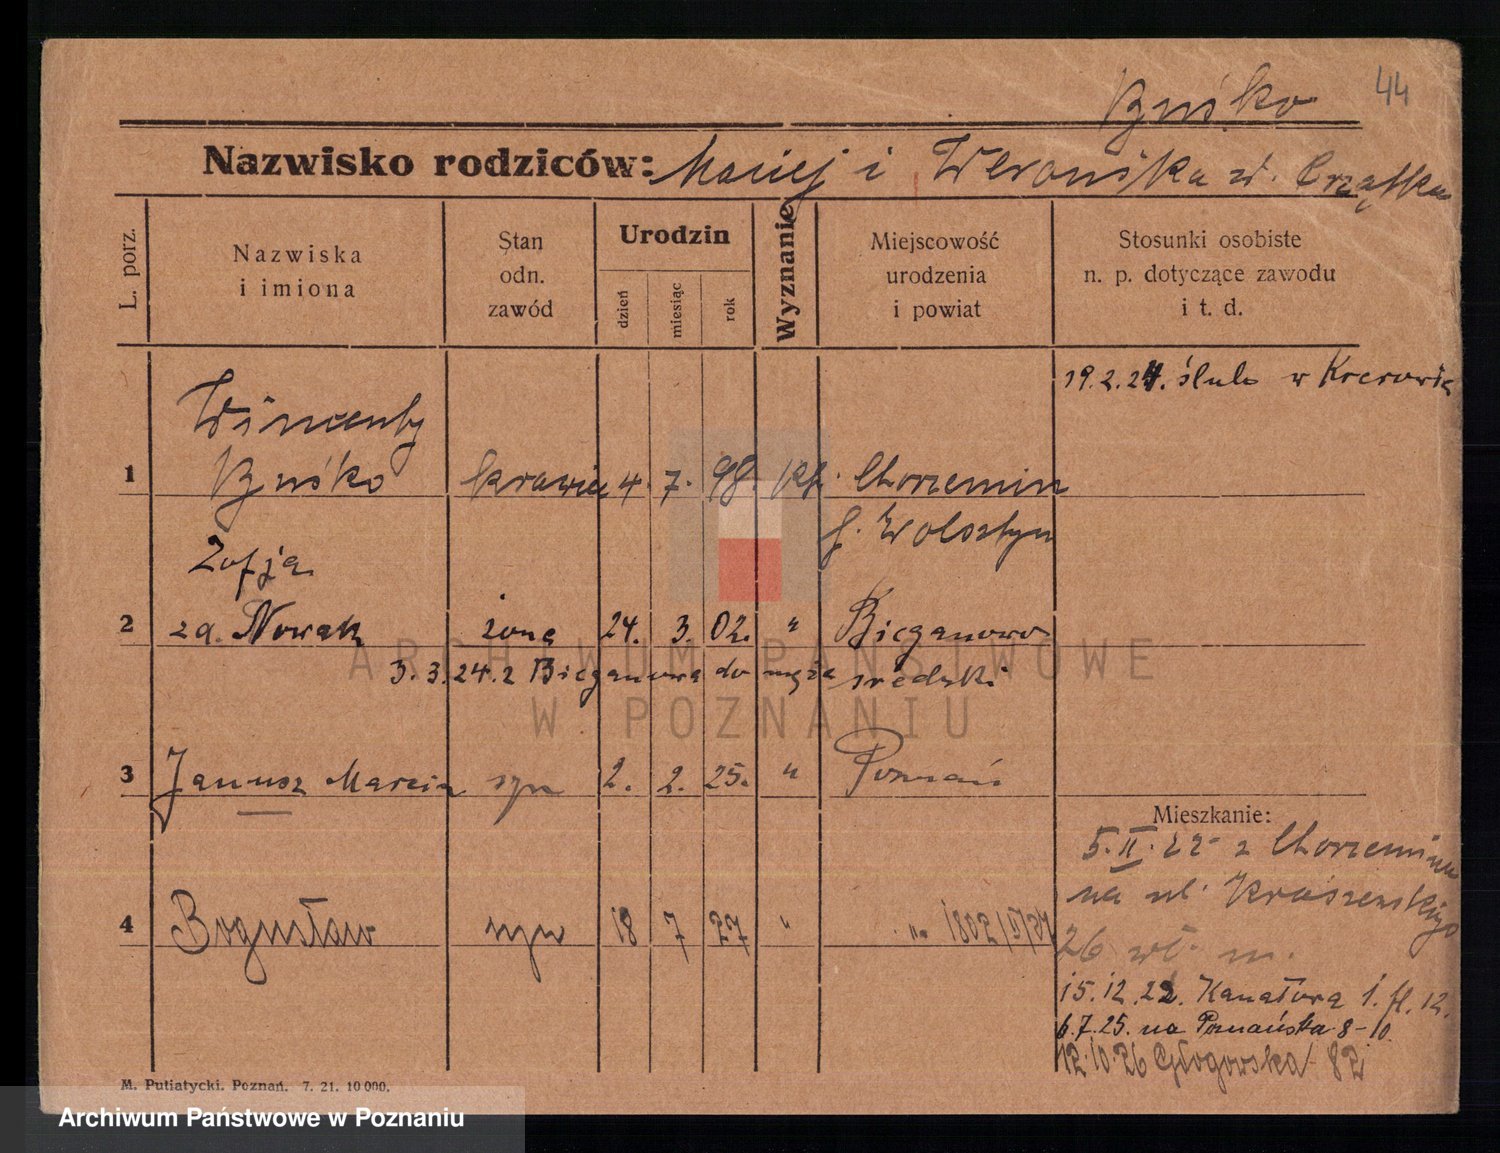 Buśko 44
Nazwisko rodziców: Maciej i Weronika z d. Brzątka
L. porz.
Nazwiska i imiona
Stan odn. zawód
Urodzin
dzień miesiąc rok
Wyznanie
Miejscowość urodzenia i powiat
Stosunki osobiste n. p. dotyczące zawodu i t. d.
19.2.24. ślub w Krerowie
Wincenty
1 Buśko krawiec 4. 7. 98. kł. Chorzemin
p. Wolsztyn
Zofja
2 zd. Nowak żona 24. 3. 02. " Bieganowo
3.3.24. z Bieganowa do męża średzki
3 Janusz Marcin syn 2. 2. 25. " Poznań
Mieszkanie:
5.II.22 z Chorzemina
na ul. Kraszewskiego
4 Bogusław syn 18 7 27 " "
26 wł. m.
15.12.22. Kanałowa 1. fl. 12.
6.7.25. na Poznańska 8-10
12.10.26 Głogowska 82
M. Putiatycki. Poznań. 7. 21. 10 000.
ARCHIWUM PAŃSTWOWE
W POZNANIU
Archiwum Państwowe w Poznaniu